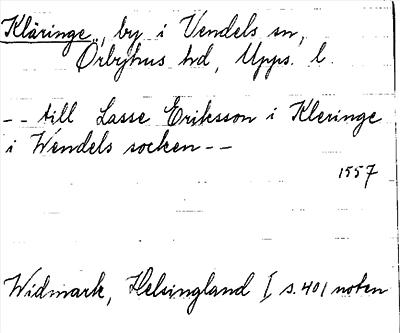 Kläringe, by i Vendels sn,
Örbyhus hd, Upps. l.
-- till Lasse Eriksson i Kleringe
i Wendels socken --
1557
Widmark, Helsingland I s. 401 noten